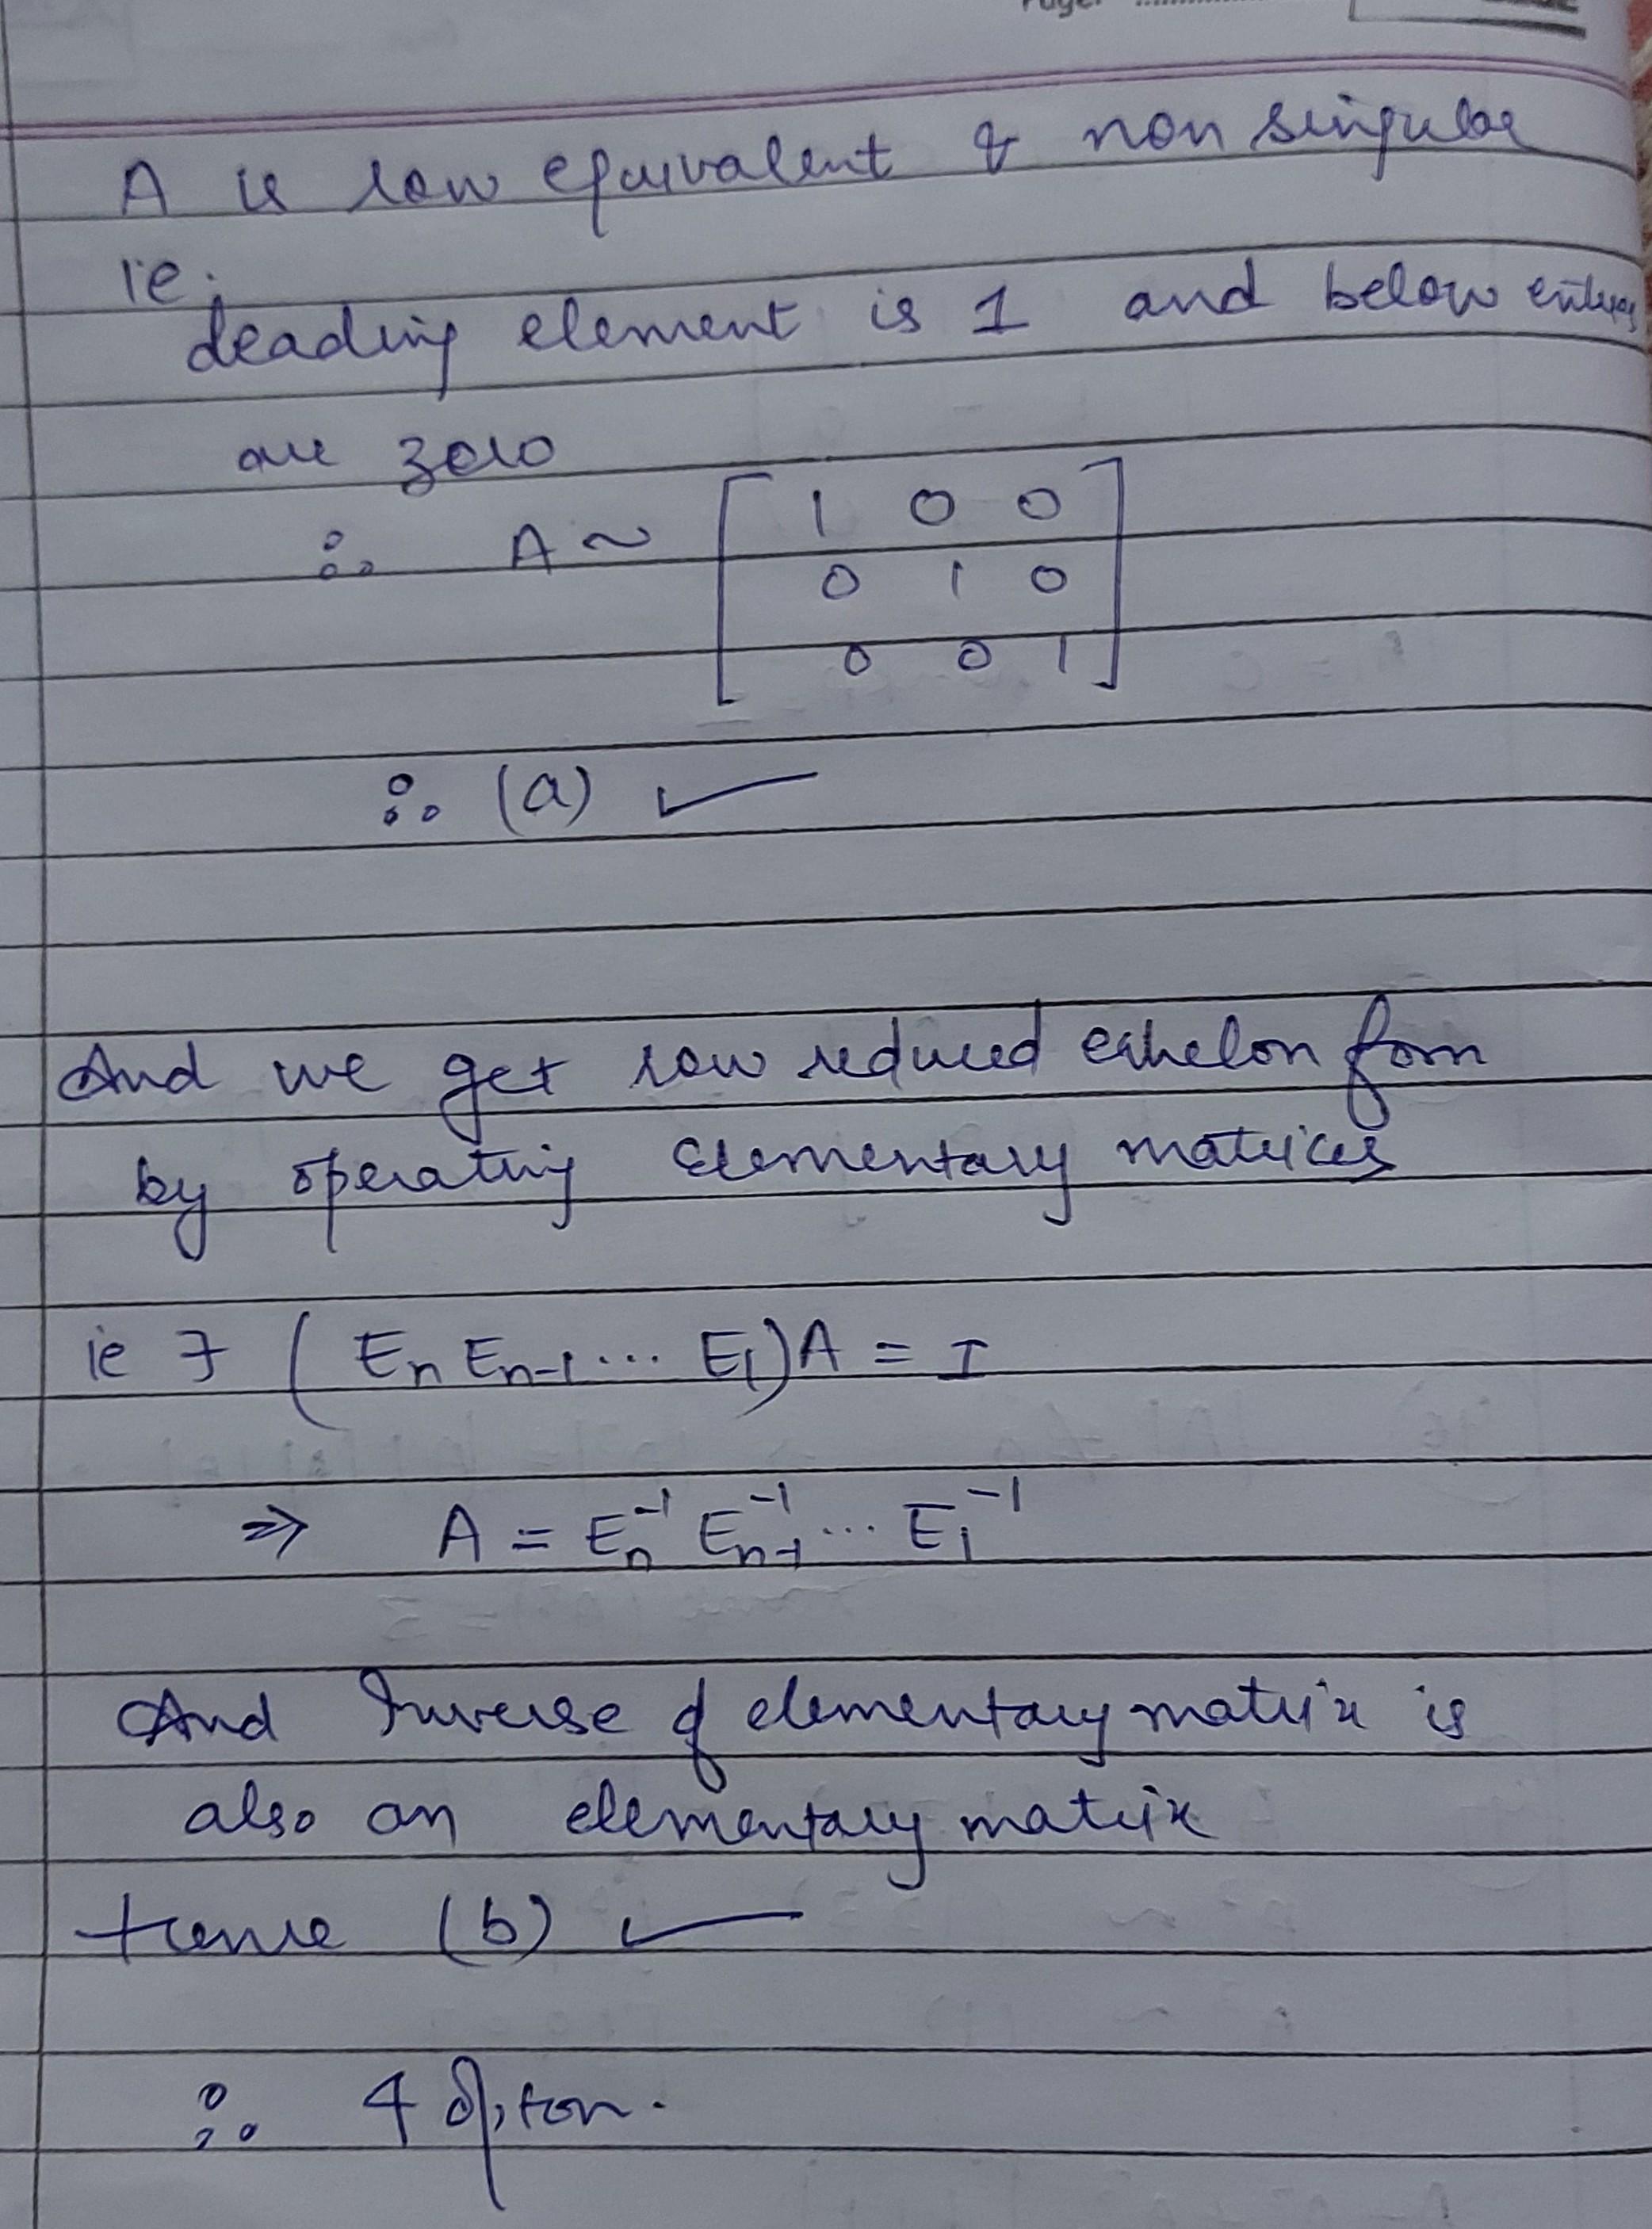 A is row equivalent & non singular
ie.
Leading element is 1 and below entries
are zero
∴ A ~ [ 1 0 0
0 1 0
0 0 1 ]
∴ (a) ✓
And we get row reduced echelon form
by operating Elementary matrices
ie ∃ (Eₙ Eₙ₋₁ ... E₁)A = I
⇒ A = Eₙ⁻¹ Eₙ₋₁⁻¹ ... E₁⁻¹
And Inverse of elementary matrix is
also an elementary matrix
Hence (b) ✓
∴ 4 option.